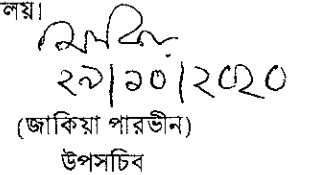 লয়।
২৯|১০|২০২০
(জাকিয়া পারভীন)
উপসচিব